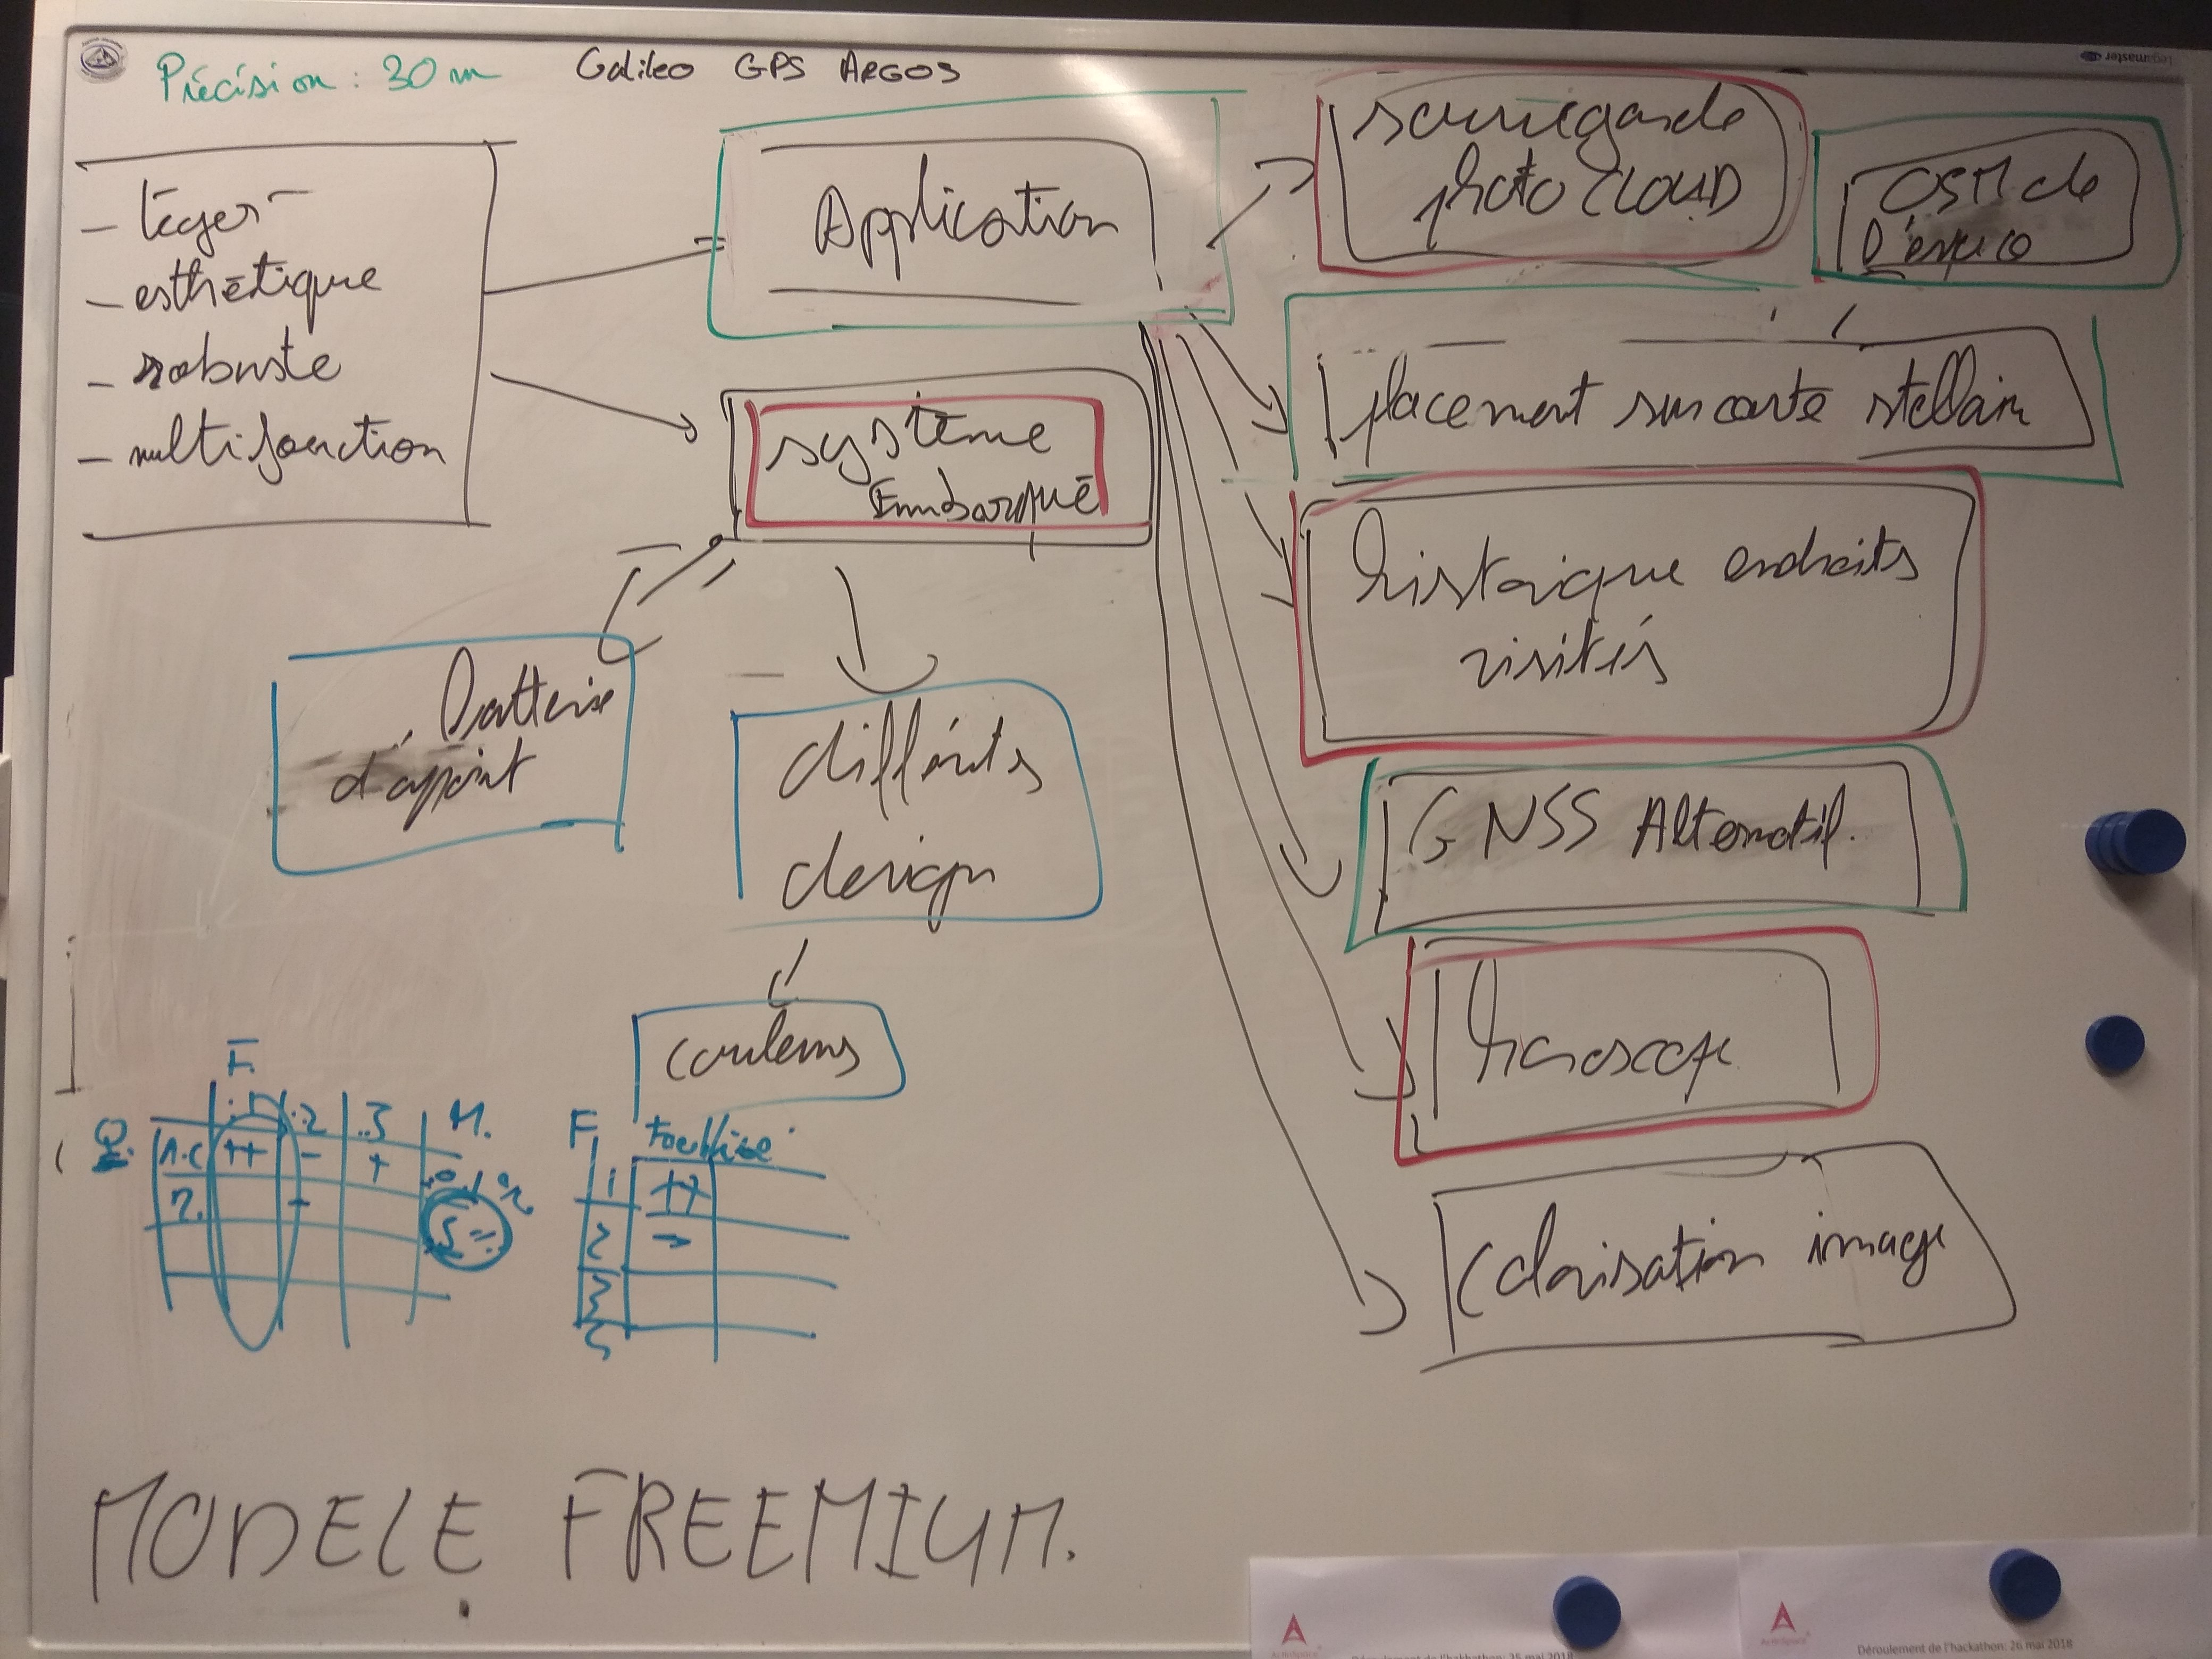 Précision : 30 m
Galileo GPS ARGOS
- léger
- esthétique
- robuste
- multifonction
Application
système
Embarqué
batterie
d'apoint
différents
design
couleurs
sauvegarde
photo CLOUD
OSM de
l'espace
placement sur carte stellair
historique endroits
visités
GNSS Alternatif.
horoscope
Colorisation image
F.
.1 .2 .3 M.
Q. 1.C ++ - +
2. -
F
1 ++
2
3
MODELE FREEMIUM.
Legamaster
Déroulement de l'hackathon: 25 mai 2018
Déroulement de l'hackathon: 26 mai 2018